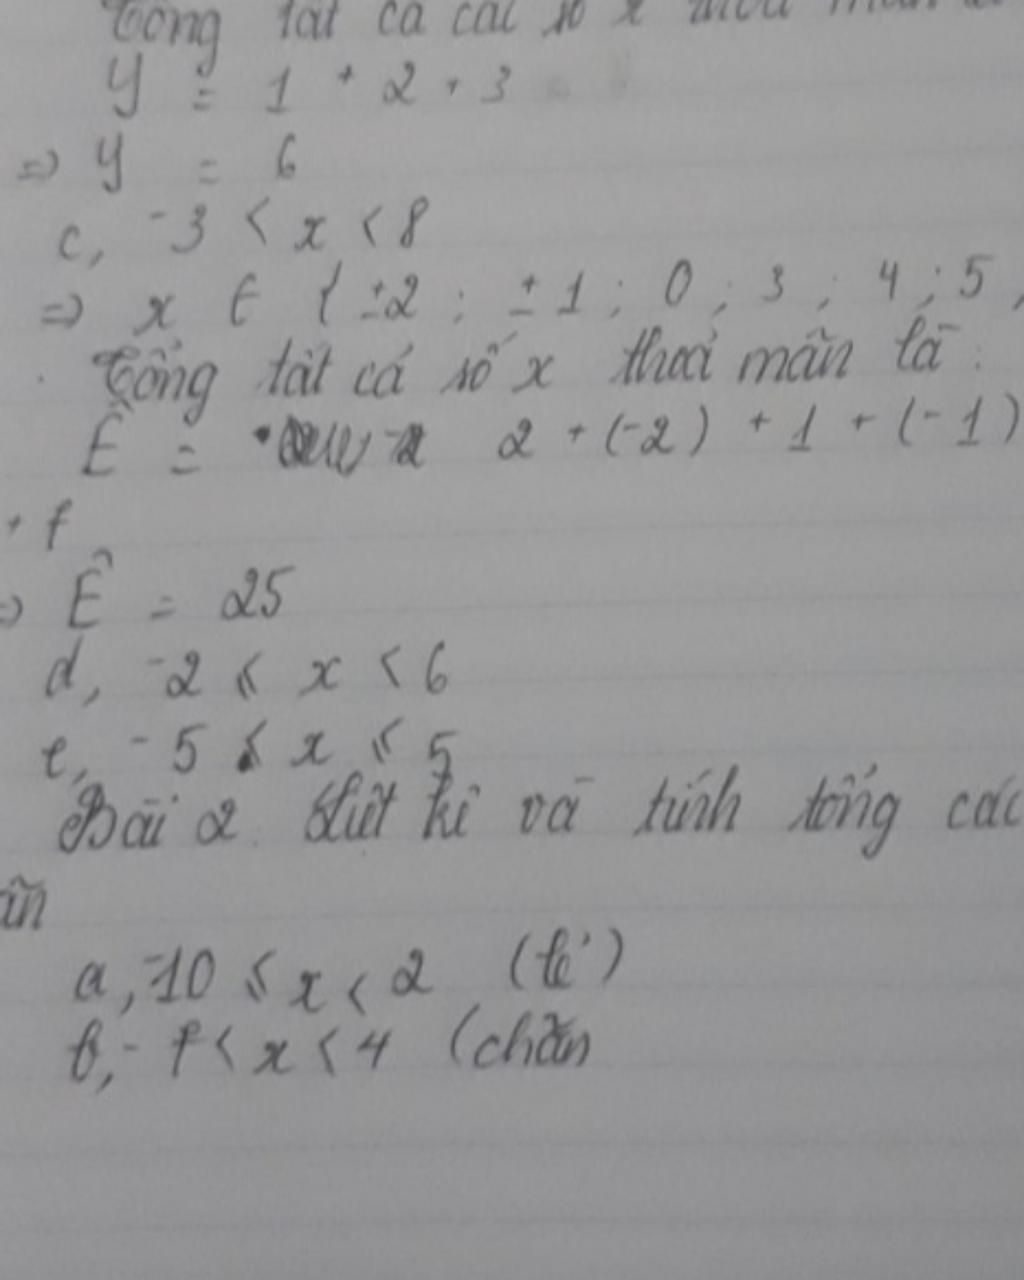 Tổng tất cả các số x thoả mãn
Y = 1 + 2 + 3
=> Y = 6
c, -3 < x < 8
=> x ∈ { ±2 ; ±1 ; 0 ; 3 ; 4 ; 5 ;
Tổng tất cá số x thoả mãn là :
Ê = 2 + (-2) + 1 + (-1)
+ 7
=> Ê = 25
d, -2 ≤ x < 6
e, -5 ≤ x ≤ 5
Bài 2. Liệt kê và tính tổng các
a, -10 ≤ x < 2 (lẻ)
b, -7 < x < 4 (chẵn